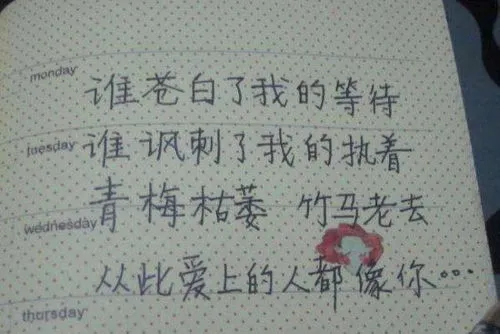 monday
谁苍白了我的等待
tuesday
谁讽刺了我的执着
wednesday
青梅枯萎 竹马老去
从此爱上的人都像你…
thursday